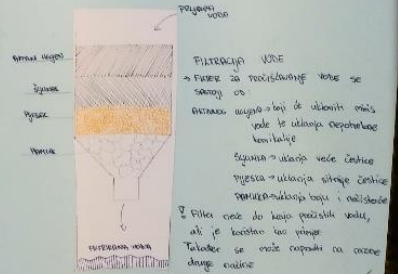 PRLJAVA
VODA
AKTIVNI UGLJEN
ŠLJUNAK
PIJESAK
PAMUK
FILTRIRANA VODA
FILTRACIJA VODE
→ FILTER ZA PROČIŠĆAVANJE VODE SE
SASTOJI OD:
AKTIVNOG UGLJENA → koji će ukloniti miris
vode te uklanja nepotrebne
kemikalije
ŠLJUNKA → uklanja veće čestice
PIJESKA → uklanja sitnije čestice
PAMUKA → uklanja boju i nečistoće
! Filter neće do kraja pročistiti vodu,
ali je koristan kao primjer
Također se može napraviti na razne
druge načine